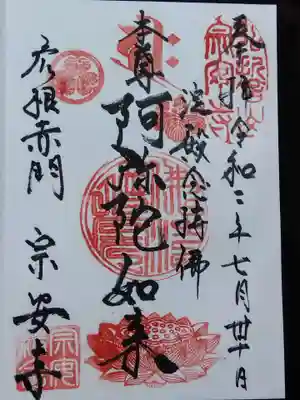 奉拝 令和二年七月廿日
淀殿念持佛
本尊 阿弥陀如来
彦根赤門 宗安寺